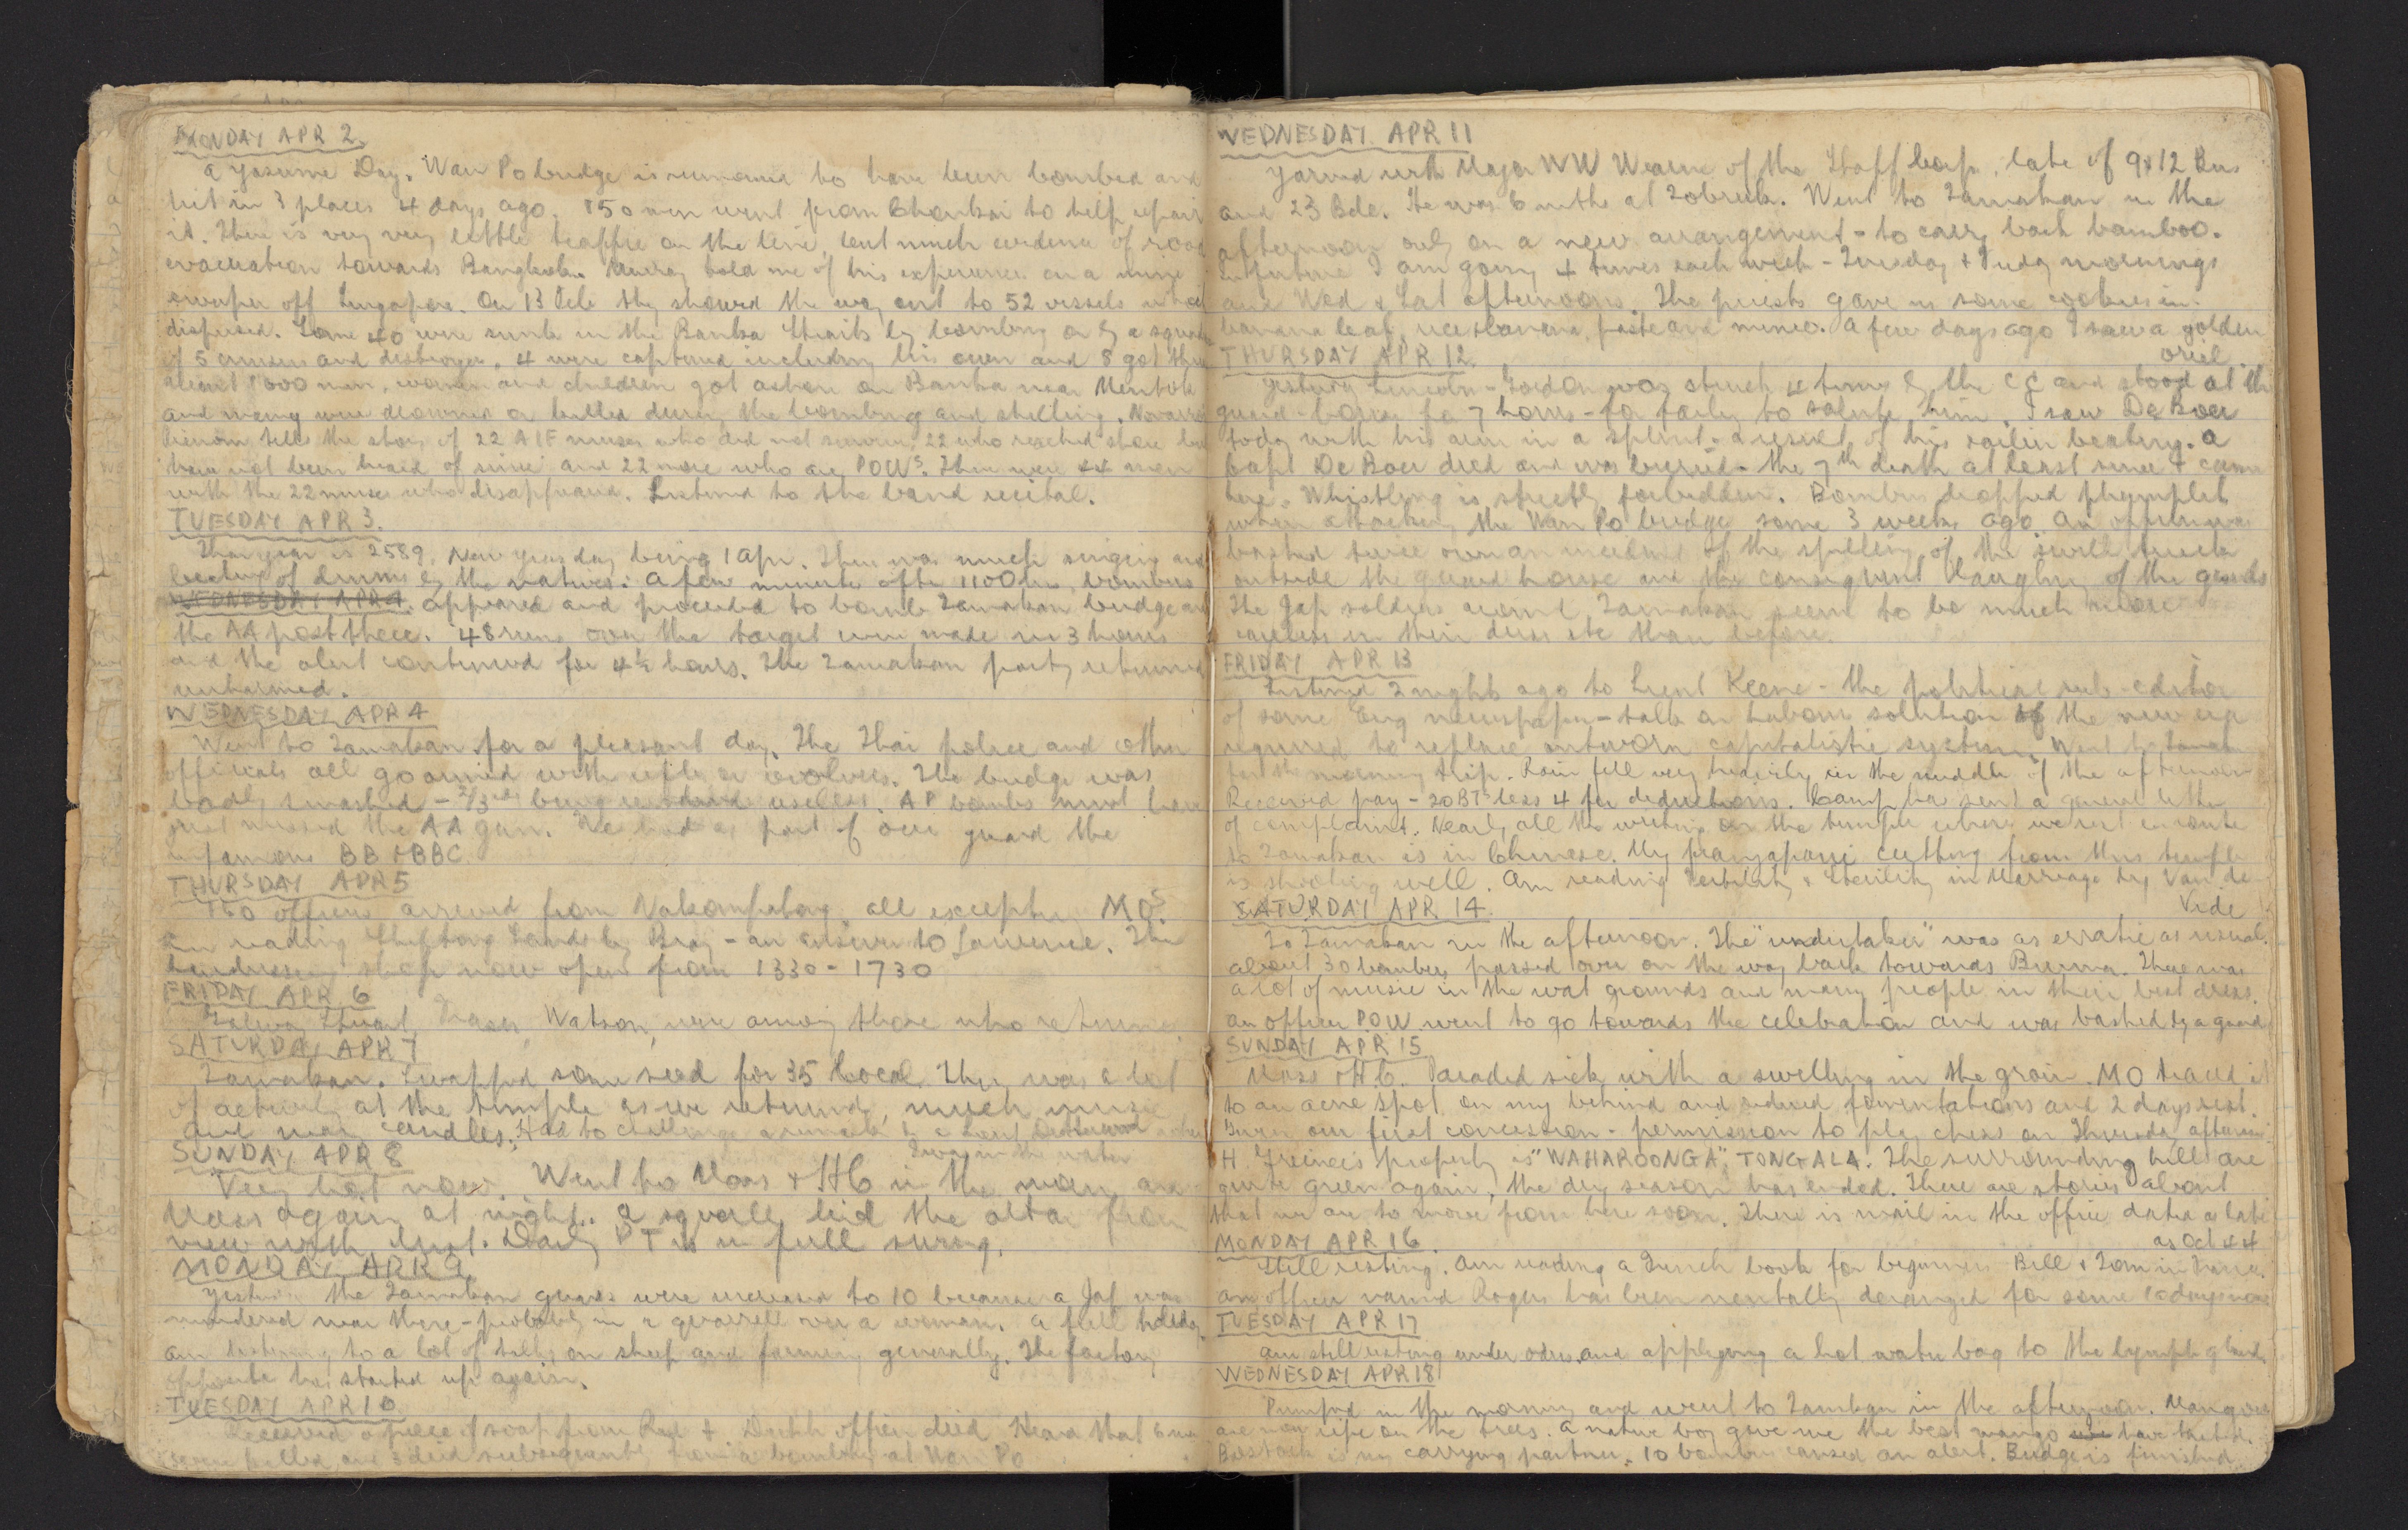 MONDAY APR 2.
A Yasume Day. Wan Po bridge is rumoured to have been bombed and
hit in 3 places 4 days ago. 150 men went from Chonkai to help repair
it. There is very very little traffic on the line, but much evidence of road
evacuation towards Bangkok. Murray told me of his experiences on a mine
sweeper off Singapore. On 13 Feb they showed the way out to 52 vessels which
dispersed. Some 40 were sunk in the Banka Straits by bombing or by a squadron
of 5 cruisers and destroyers, 4 were captured including his own and 8 got thru
about 1000 men, women and children got ashore on Banka near Mentok
and many were drowned or killed during the bombing and shelling.
tells the story of 22 AIF nurses who did not survive, 22 who reached shore but
have not been heard of since and 22 more who are POWs. There were 44 men
with the 22 nurses who disappeared. Listened to the band recital.
TUESDAY APR 3.
Thai year is 2589, New Years day being 1 Apr. There was much singing and
beating of drums by the natives. A few minutes after 1100 hrs, bombers
WEDNESDAY APR 4. appeared and proceeded to bomb Tamakan bridge and
the AA post there. 48 runs over the target were made in 3 hours
and the alert continued for 4½ hours. The Tamakan party returned
unharmed.
WEDNESDAY APR 4
Went to Tamakan for a pleasant day. The Thai police and other
officials all go armed with rifles or revolvers. The bridge was
badly smashed - 2/3rds being rendered useless. AP bombs must have
just missed the AA gun. We had as part of our guard the
infamous BB & BBC.
THURSDAY APR 5
160 officers arrived from Nakompatong, all excepting MOs.
Am reading Shifting Sands by Bray - an answer to Lawrence. The
hairdressing shop now open from 1330 - 1730
FRIDAY APR 6
Galway, Stuart, Fraser, Watson, were among those who returned.
SATURDAY APR 7
Tamakan. Swapped some seed for 35 local. There was a lot
of activity at the temple as we returned, much music
and many candles. Had to challenge a remark by a Lieut
Swam in the water
SUNDAY APR 8
Very hot now. Went to Mass & HC in the morn, and
Mass again at night. A squall hid the altar from
view with dust. Daily PT is in full swing.
MONDAY APR 9
Yesterday the Tamakan guards were increased to 10 because a Jap was
murdered near there - probably in a quarrell over a woman. A full holiday.
am listening to a lot of talks on sheep and farming generally. The factory
opposite has started up again.
TUESDAY APR 10
Received a piece of soap from Red +. Dutch officer died. Heard that 6 men
were killed and 3 died subsequently from a bombing at Wan Po
WEDNESDAY. APR 11
Yarned with Major WW Wearne of the Staff Corps, late of 9 & 12 Bns
and 23 Bde. He was 6 mths at Tobruk. Went to Tamakan in the
afternoon only on a new arrangement - to carry back bamboo.
In future I am going 4 times each week - Tuesday & Friday mornings
and Wed & Sat afternoons. The priests gave us some cookies in
banana leaf, rice, banana, paste and mince. A few days ago I saw a golden
oriel.
THURSDAY APR 12.
Yesterday Lincoln-Gordon was struck 4 times by the CE and stood at the
guard-house for 7 hours - for failing to salute him. I saw De Boer
today with his arm in a splint - a result of his earlier beating. A
Capt De Boer died and was buried - the 7th death at least since I came
here. Whistling is strictly forbidden. Bombers dropped pamphlets
when attacking the Wan Po bridge some 3 weeks ago. An officer was
bashed twice over an incident of the spilling of the swill truck
outside the guard house and the consequent laughing of the guards
The Jap soldiers around Tamakan seem to be much more
careless in their dress etc than before.
FRIDAY APR 13
Listened 2 nights ago to Lieut Keene - the political sub-editor
of some Eng newspaper - talk on Labour solution of the new era
required to replace outworn capitalistic system. Went to Tamakan
for the morning trip. Rain fell very heavily in the middle of the afternoon
Received pay - 20 BTs less 4 for deductions. Camp has sent a general letter
of complaint. Nearly all the writing on the temple where we rest en route
to Tamakan is in Chinese. My frangapanni cutting from this temple
is shooting well. Am reading Fertility & Sterility in Marriage by Van de
Velde
SATURDAY APR 14.
To Tamakan in the afternoon. The "undertaker" was as erratic as usual.
about 30 bombers passed over on the way back towards Burma. There was
a lot of music in the wat grounds and many people in their best dress.
an officer POW went to go towards the celebration and was bashed by a guard
SUNDAY APR 15
Mass & HC. Paraded sick with a swelling in the groin. MO traced it
to an acne spot on my behind and ordered fomentations and 2 days rest.
Given our first concession - permission to play chess on Thursday afternoon.
H. Greince's property is "WAHAROONGA", TONGALA. The surrounding hills are
quite green again, the dry season has ended. There are stories about
that we are to move from here soon. There is mail in the office dated as late
as Oct 44
MONDAY APR 16.
Still resting. Am reading a French book for beginners Bill & Tom in France.
An officer named Rogers has been mentally deranged for some 10 days now
TUESDAY APR 17
am still resting under orders and applying a hot water bag to the lymph glands
WEDNESDAY APR 18
Pumped in the morning and went to Tamakan in the afternoon. Mangoes
are now ripe on the trees. A native boy gave me the best mango have tasted.
Bostock is my carrying partner. 10 bombers caused an alert. Bridge is finished